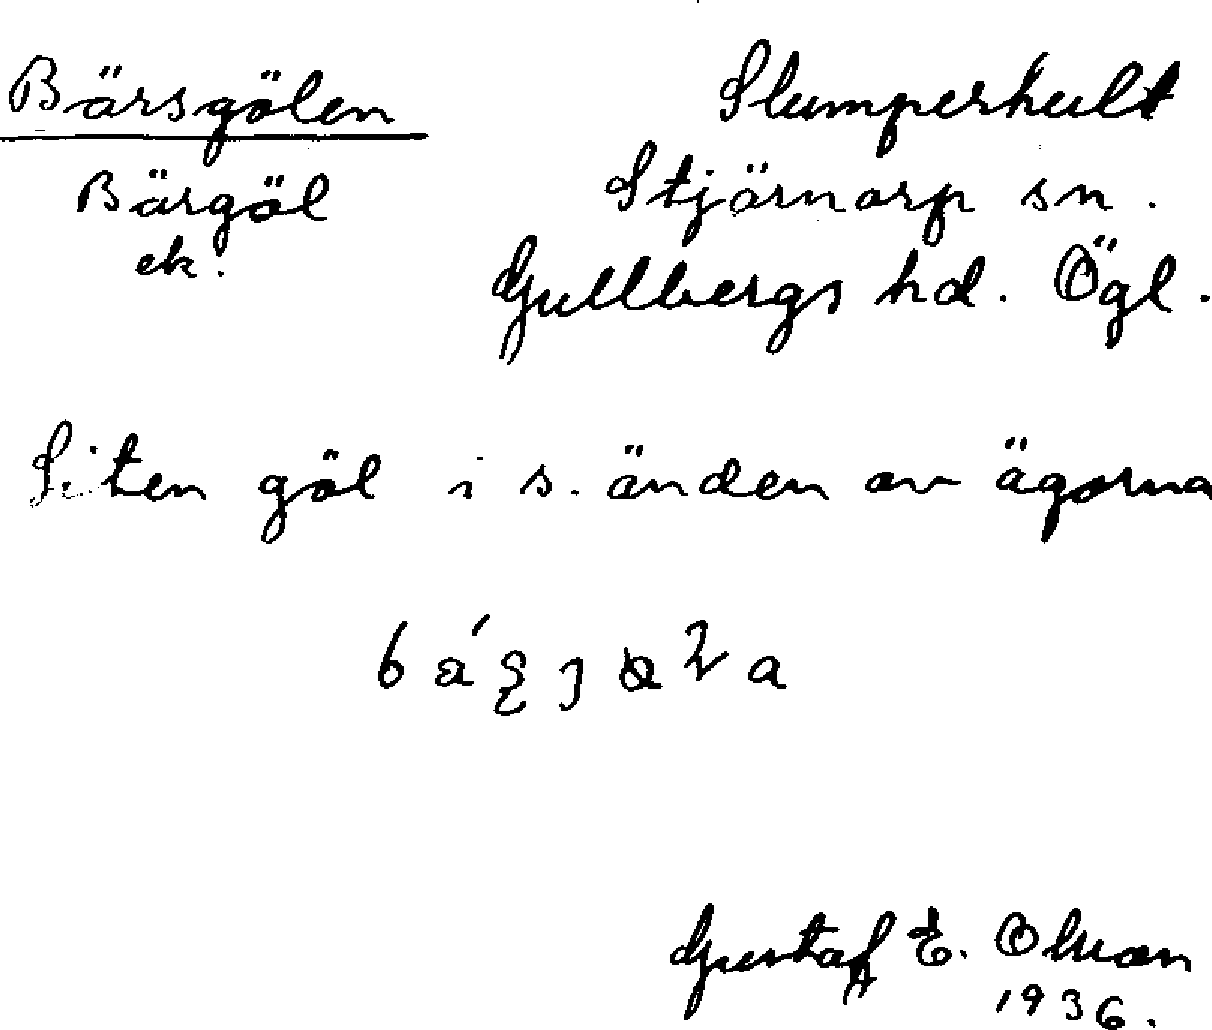 Bärsgölen
Bärgöl
ek.
Slumperhult
Stjärnorp sn.
Gullbergs hd. Ögl.
Liten göl i s. änden av ägorna
Gustaf E. Olsson
1936.